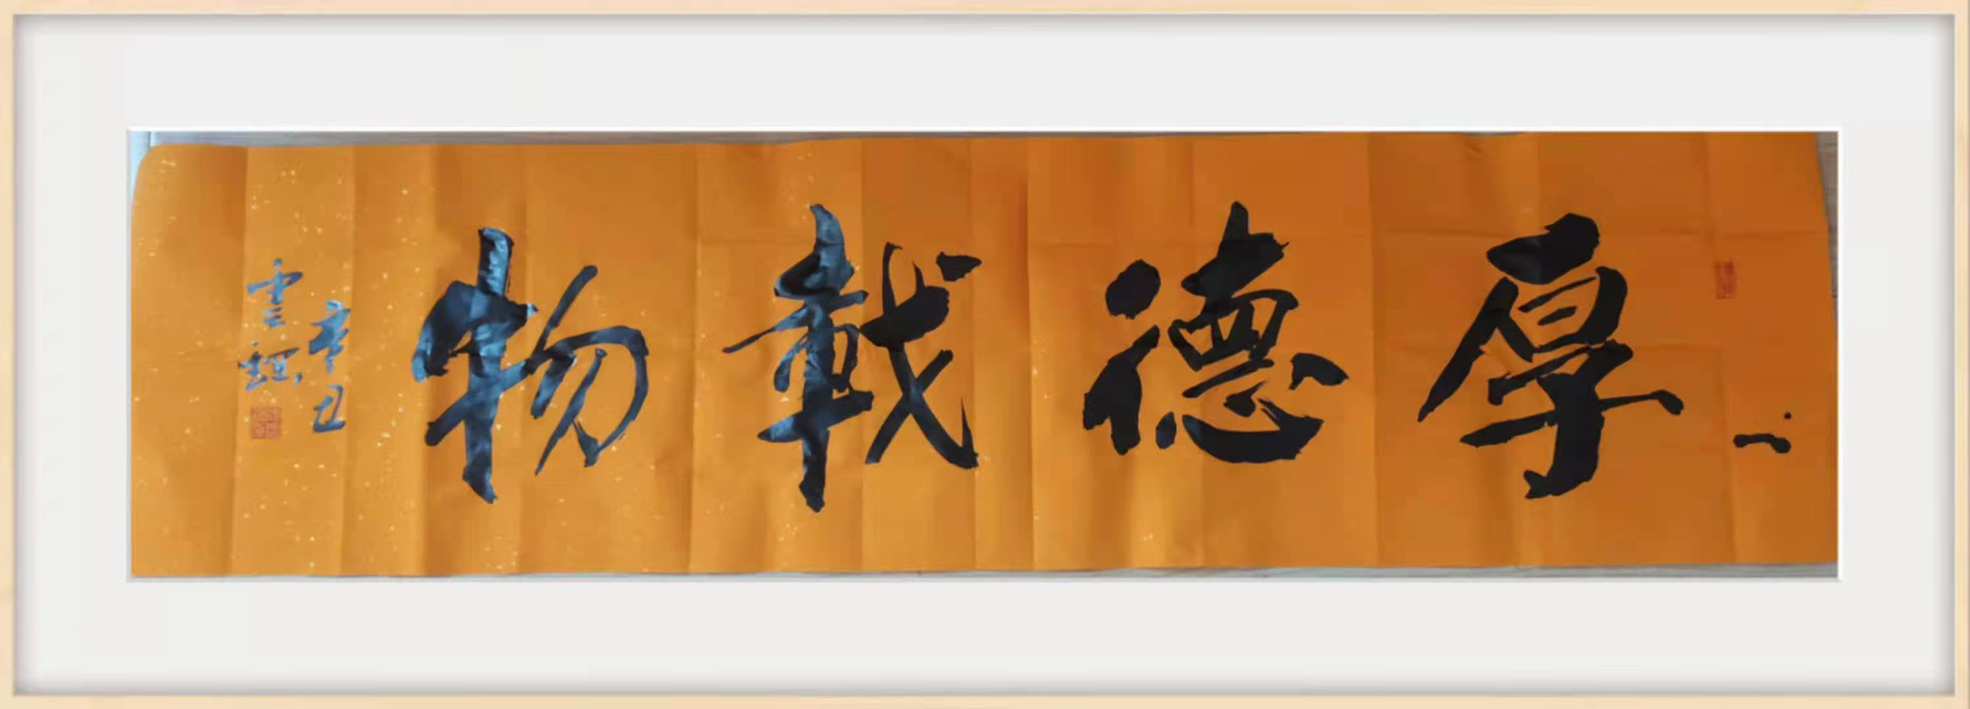 厚德載物
辛丑
雲